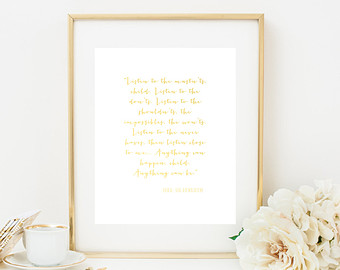 "Listen to the mustn'ts,
child. Listen to the
don'ts. Listen to the
shouldn'ts, the
impossibles, the won'ts.
Listen to the never
haves, then listen close
to me... Anything can
happen, child.
Anything can be."
SHEL SILVERSTEIN